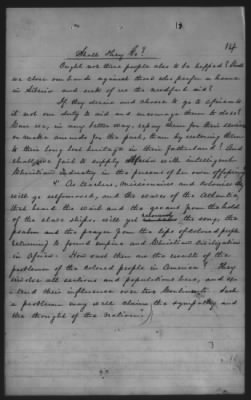 14
Shall They Go?
Ought not these people also to be helped? Shall
we close our hands against those who prefer a home
in Liberia and seek of us the needful aid?
If they desire and choose to go to Africa is
it not our duty to aid and encourage them to do so?
Can we, in any better way, repay them for their labor
or make amends for the past, than by restoring them
to their long lost heritage in their fatherland? And
shall we fail to supply Africa with intelligent
Christian Industry in the persons of her own offspring
As teachers, missionaries and colonists they
will go reformed, and the waves of the Atlantic
that heard the wail and the groan from the hold
of the slave ships, will yet reverently the song, the
psalm and the prayer from the lips of colored people
returning to found empire and Christian Civilization
in Africa. How vast then are the result of the
problem of the colored people in America. They
involve all sections and populations here, and ex-
tend their influence over two Continents. Such
a problem may well claim the sympathy and
the thought of the Nation.